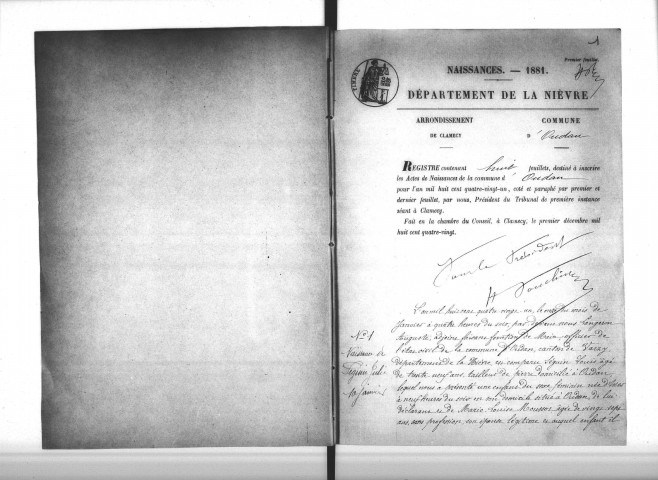 1
Premier feuillet.
TIMBRE
NAISSANCES. — 1881.
DÉPARTEMENT DE LA NIÈVRE
ARRONDISSEMENT
DE CLAMECY
COMMUNE
D'Oudan
REGISTRE contenant huit feuillets, destiné à inscrire
les Actes de Naissances de la commune d'Oudan
pour l'an mil huit cent quatre-vingt-un, coté et paraphé par premier et
dernier feuillet, par nous, Président du Tribunal de première instance
séant à Clamecy.
Fait en la chambre du Conseil, à Clamecy, le premier décembre mil
huit cent quatre-vingt.
Pour le Président
No 1
Naissance de
Seguin
10 janvier
L'an mil huit cent quatre vingt un, le du mois de
Janvier à quatre heures du soir, par devant nous
Auguste, adjoint, faisant fonction de Maire, officier de
l'état civil de la commune d'Oudan, canton de Varzy
département de la Nièvre, est comparu Seguin Louis âgé
de trente neuf ans, tailleur de pierre domicilié à Oudan
lequel nous a présenté un enfant du sexe féminin née
à neuf heures du soir en son domicile situé à Oudan, de lui
déclarant et de Marie Louise âgée de vingt sept
ans, sans profession, son épouse légitime et auquel enfant il